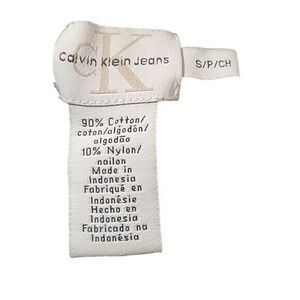 CK
Calvin Klein Jeans
S/P/CH
90% Cotton/
coton/algodón/
algodão
10% Nylon/
nailon
Made in
Indonesia
Fabriqué en
Indonésie
Hecho en
Indonesia
Fabricado na
Indonésia